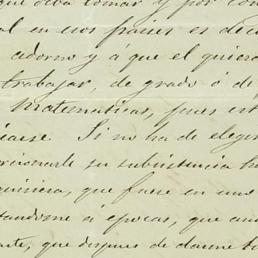 que deva tomar y por con
al en esos paises es deci
adorno y á que el quiera
trabajar, de grado ó de
matematicas, pues est
iarse. Si no ha de elegir
orcionarle su subsistancia h
quisiera, que fuese en uno
tandome á epocas, que aun
nte, que despues de darme